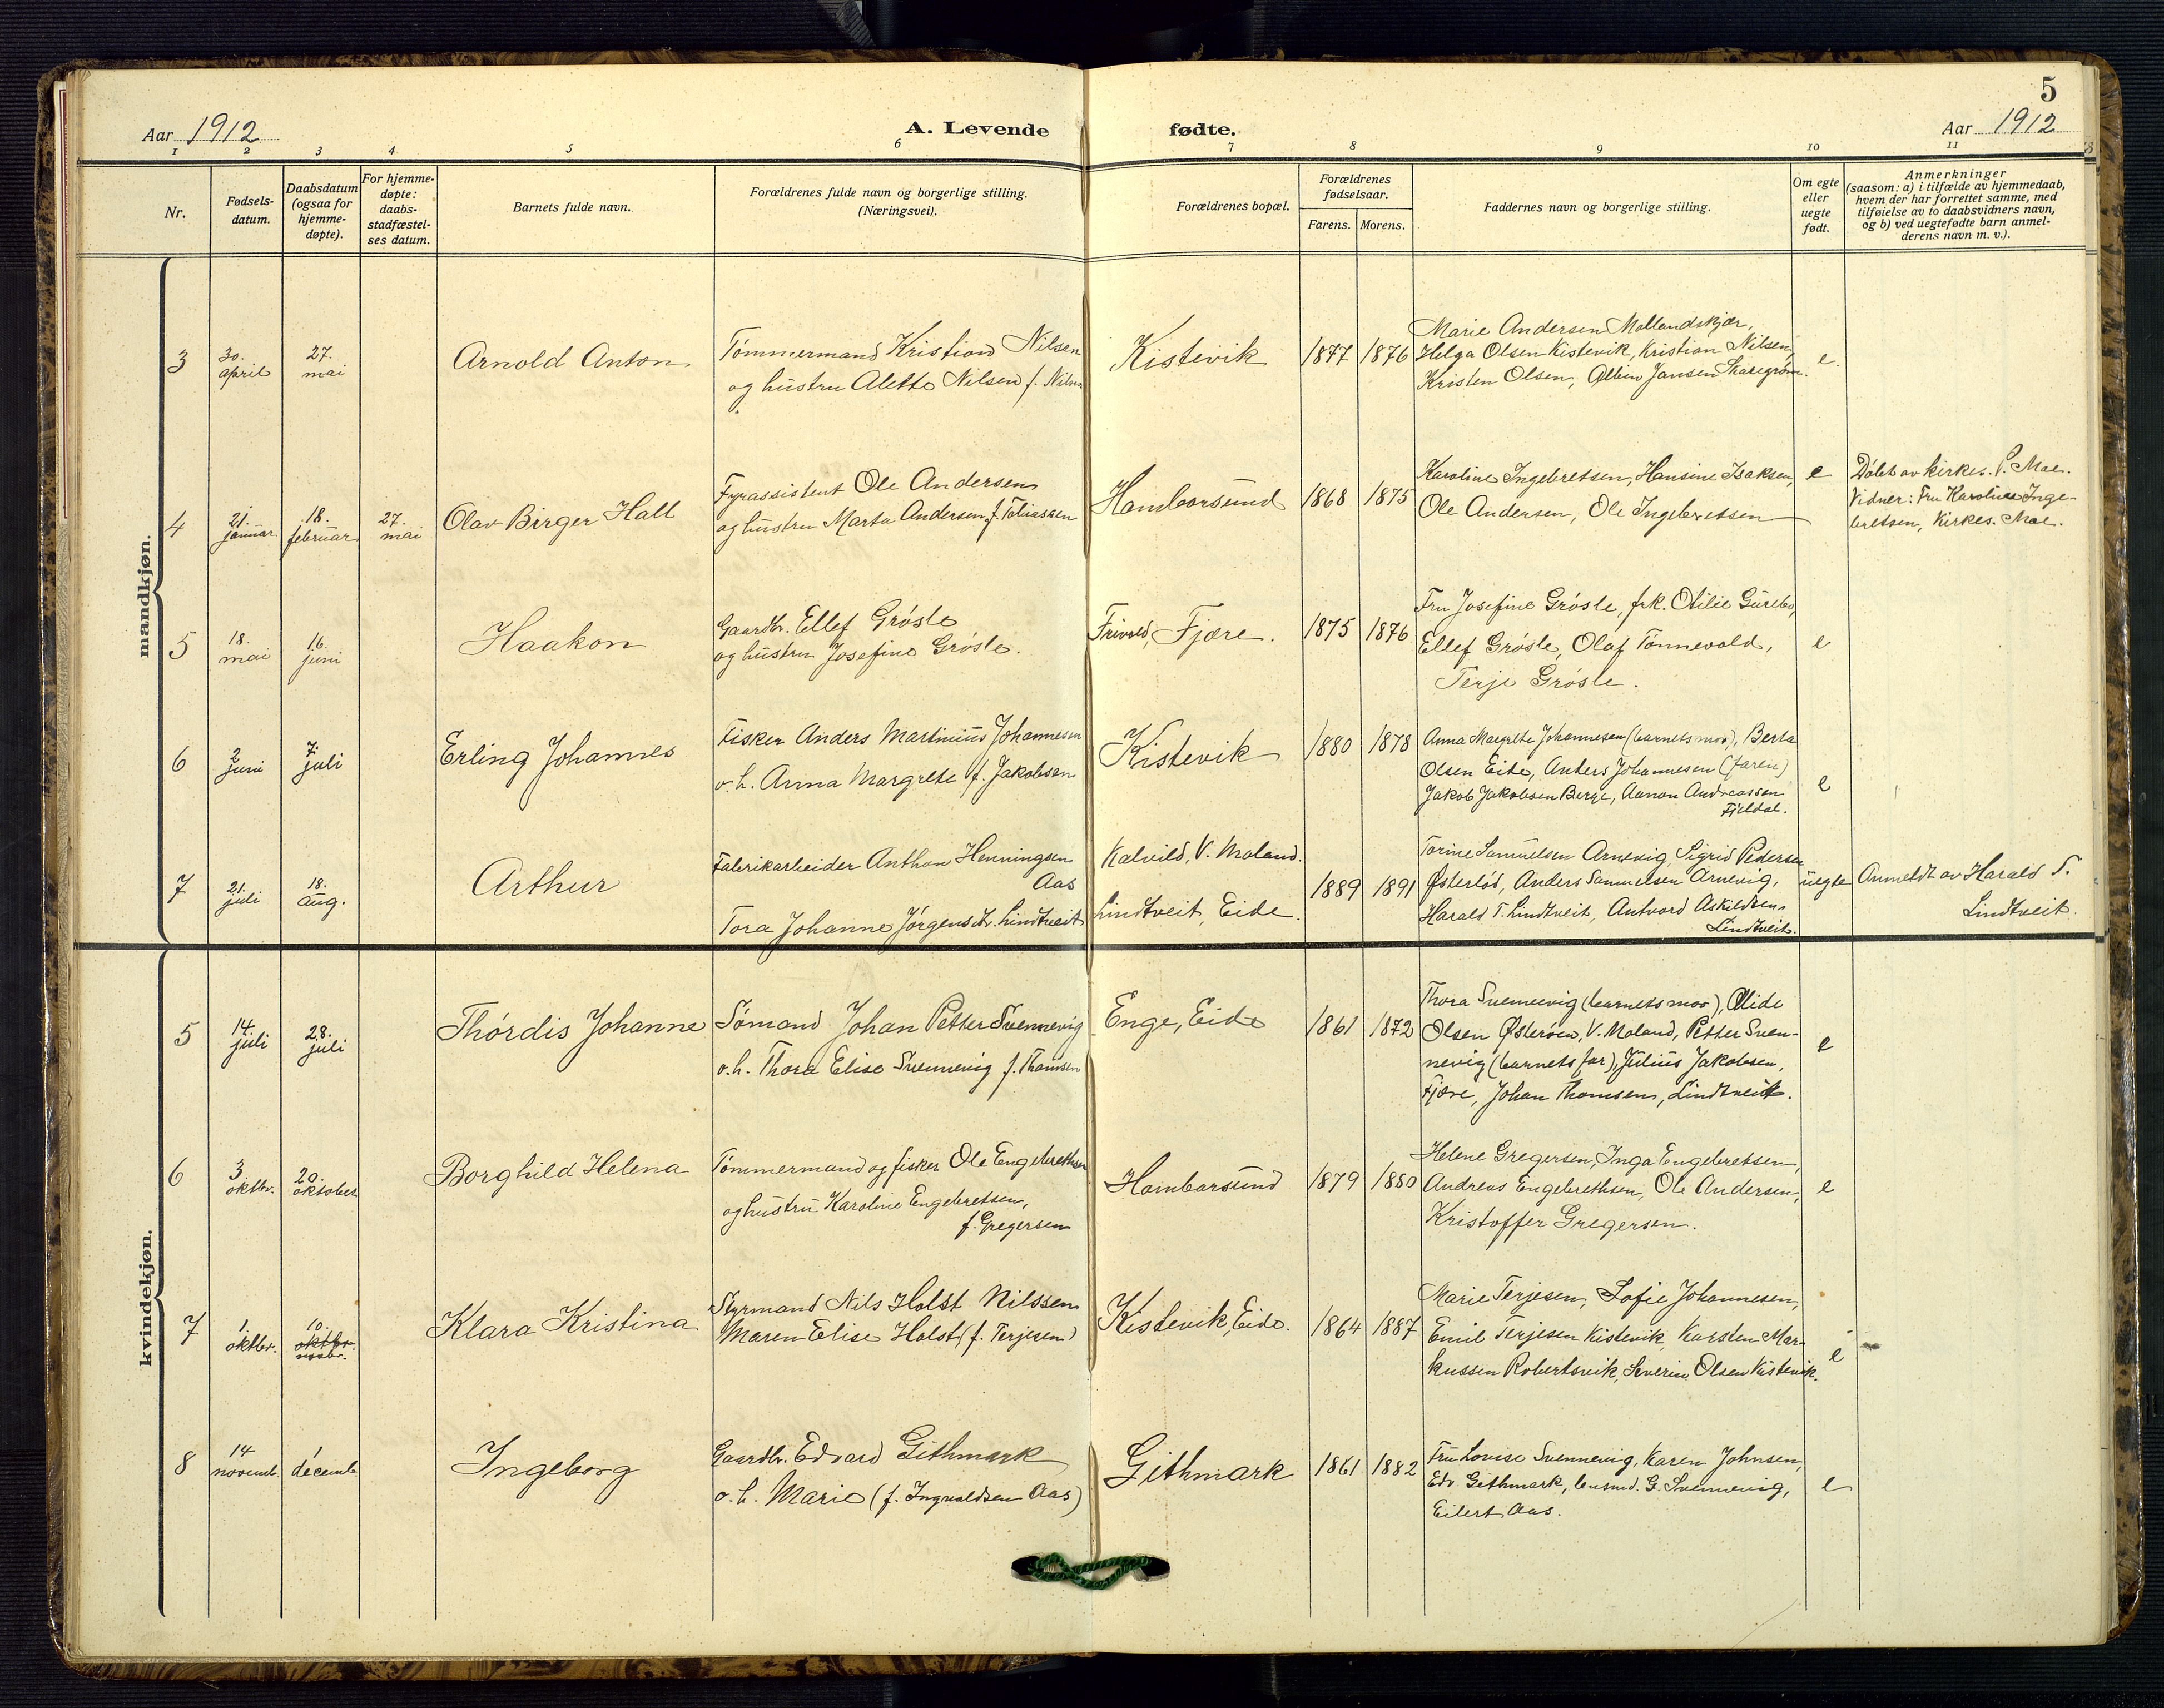 5
Aar 1912
A. Levende fødte.
Aar 1912
1 2 3 4 5 6 7 8 9 10 11
Nr.
Fødsels-
datum.
Daabsdatum
(ogsaa for
hjemme-
døpte).
For hjemme-
døpte:
daabs-
stadfæstel-
ses datum.
Barnets fulde navn.
Forældrenes fulde navn og borgerlige stilling.
(Næringsvei).
Forældrenes bopæl.
Forældrenes
fødselsaar.
Farens. Morens.
Faddernes navn og borgerlige stilling.
Om egte
eller
uegte
født.
Anmerkninger
(saasom: a) i tilfælde av hjemmedaab,
hvem der har forrettet samme, med
tilføielse av to daabsvidners navn,
og b) ved uegtefødte barn anmel-
derens navn m. v.).
mandkjøn.
3
30.
april
27.
mai
Arnold Anton
Tømmermand Kristian Nilsen
og hustru Alette Nilsen f. Nilsen
Kistevik
1877 1876
Marie Andersen Mollandskjær,
Helga Olsen Kistevik, Kristian Nilsen,
Kristen Olsen, Jansen
e.
4
21.
januar
18.
februar
27.
mai
Olav Birger Hall
Fyrassistent Ole Andersen
og hustru Marta Andersen f. Tobiassen
Hamborsund
1868 1875
Karoline Ingebretsen, Hansine Isaksen,
Ole Andersen, Ole Ingebretsen
e
Døbt av kirkes. P. Moe.
Vidner: Fru Karoline Inge-
bretsen, Kirkes. Moe.
5
18.
mai
16.
juni
Haakon
Gaardbr. Ellef Grøsle
og hustru Josefine Grøsle.
Frivold, Fjære.
1875 1876
Fru Josefine Grøsle, frk. Otilie
Ellef Grøsle, Olaf Tønnevold,
Terje Grøsle.
e
6
2
juni
7.
juli
Erling Johannes
Fisker Anders Martinius Johannesen
o. h. Anna Margrete f. Jakobsen
Kistevik
1880 1878
Anna Margrete Johannesen (barnets mor), Berta
Olsen Eide, Anders Johannesen (faren)
Jakob Jakobsen Berge, Aanon Andreassen
Fjeldal.
e
7
21.
juli
18.
aug.
Arthur
Fabrikarbeider Anthon Henningsen
Aas
Tora Johanne Jørgensdt. Lindtveit
Kalvild, V. Moland.
Lindtveit, Eide.
1889 1891
Torine Samuelsen Arnevig, Sigrid Pedersen
Østerlød, Anders Samuelsen Arnevig,
Harald T. Lindtveit, Antvord Askildsen
Lindtveit.
uegte
Anmeldt av Harald T.
Lindtveit.
kvindekjøn.
5
14.
juli
28.
juli
Thórdis Johanne
Sømand Johan Petter Svennevig
o. h. Thora Elise Svennevig f. Thomsen
Enge, Eide
1861 1872
Thora Svennevig (barnets mor), Olide
Olsen Østerøen, V. Moland, Petter Sven-
nevig (barnets far), Julius Jakobsen,
Fjære, Johan Thomsen, Lindtveit.
e
6
3.
oktbr.
20.
oktober
Borghild Helena
Tømmermand og fisker Ole Engebrethsen
og hustru Karoline Engebretsen,
f. Gregersen
Hamborsund
1879 1880
Helene Gregersen, Inga Engebretsen,
Andreas Engebrethsen, Ole Andersen,
Kristoffer Gregersen.
e
7
1.
oktbr.
10.
oktbr.
novbr.
Klara Kristina
Styrmand Nils Holst Nilssen
Maren Elise Holst (f. Terjesen)
Kistevik, Eide.
1864 1887
Marie Terjesen, Sofie Johannesen,
Emil Terjesen Kistevik, Karsten Mar-
kussen Robertsvik, Severin Olsen Kistevik.
e
8
14
novemb.
1
decemb
Ingeborg
Gaardbr. Edvard Githmark
o. h. Marie (f. Ingvaldsen Aas)
Githmark
1861 1882
Fru Lovise Svennevig, Karen Johnsen,
Edv. Githmark, lensmd. G. Svennevig,
Eilert Aas.
e